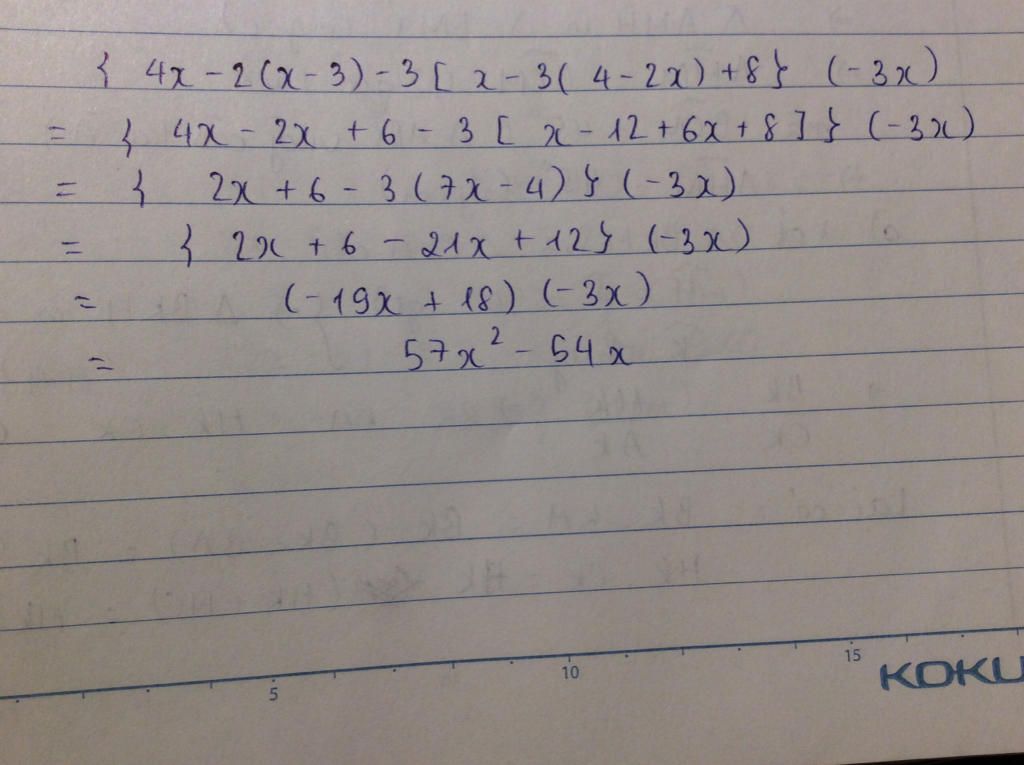 { 4x - 2(x - 3) - 3 [ x - 3( 4 - 2x) + 8 } (-3x)
= { 4x - 2x + 6 - 3 [ x - 12 + 6x + 8 ] } (-3x)
= { 2x + 6 - 3 (7x - 4) } (-3x)
= { 2x + 6 - 21x + 12 } (-3x)
= (-19x + 18) (-3x)
= 57x² - 54x
5 10 15
KOKU